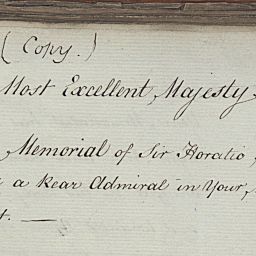 ( Copy. )
Most Excellent Majesty
Memorial of Sir Horatio
a Rear Admiral in Your